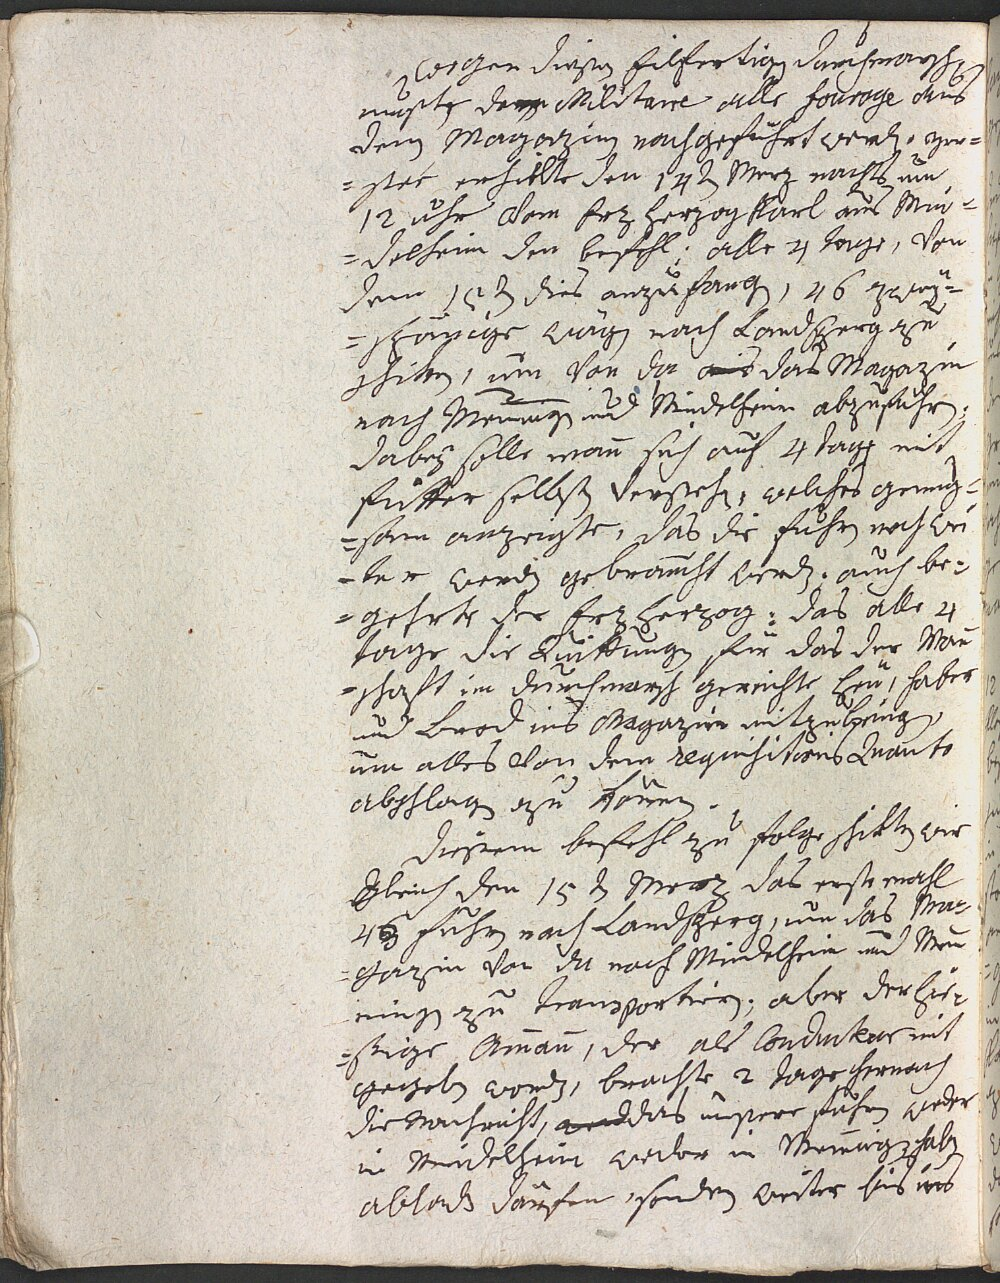 Wegen diesen Eilfertigen durchmarsch,
mußte dem Militaire alle fourage aus
dem Magazin nachgeführt werden.
=ster erhielte den 14ten Merz nachts um
12 uhr vom Erzherzog Karl aus Min=
=delheim den befehl; alle 4 tage, von
dem 15ten dies anzufangen, 46 zwey=
=spänige wägen nach Landsperg zu
schiken, um von da das Magazin
nach Memingen und Mindelheim abzuführen;
dabey solle man sich auf 4 tage mit
futter selbst versehen, welches genug=
=sam anzeigte, das die fuhren noch wei
=ter werden gebraucht werden; auch be=
=gehrte der Erzherzog: das alle 4
tage die Quittungen für das der Man
=schaft im durchmarsch gereichte heu, haber
und brod ins Magazin mitzubringen,
um alles von dem requisitions Quanto
abschlagen zu können.
Diesem befehl zu folge schikten wir
gleich den 15ten Merz das erste mahl
46 fuhren nach Landsperg, um das Ma=
=gazin von da nach Mindelheim und Mem
mingen zu transportieren; aber der hie=
=sige Amann, der als Conducteur mit
gegeben worden, brachte 2 tage hernach
die nachricht, das unsere fuhren weder
in Mindelheim weder in Memingen haben
abladen dürfen, sonder weiter bis ins